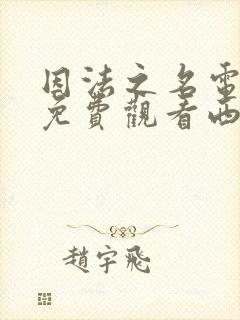 因法之名電
免費觀看西
趙宇飛